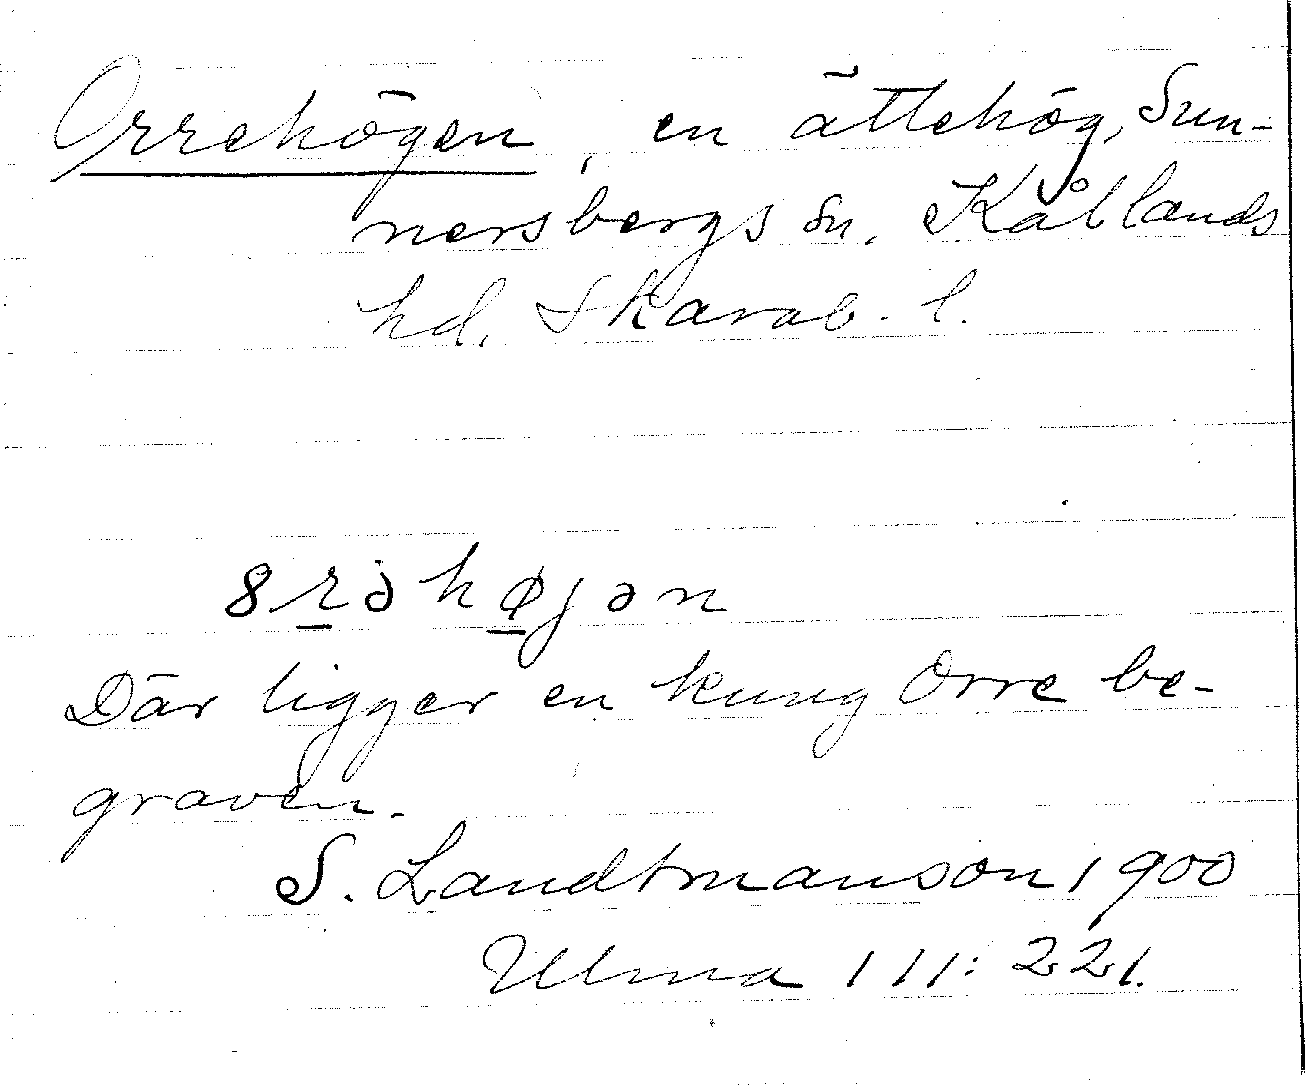 Orrehögen, en ättehög, Sun-
nersbergs sn, Kållands
hd, Skarab. l.
8rəhøjən
Där ligger en kung Orre be-
graven.
S. Landtmanson 1900
Ulma 111:221.